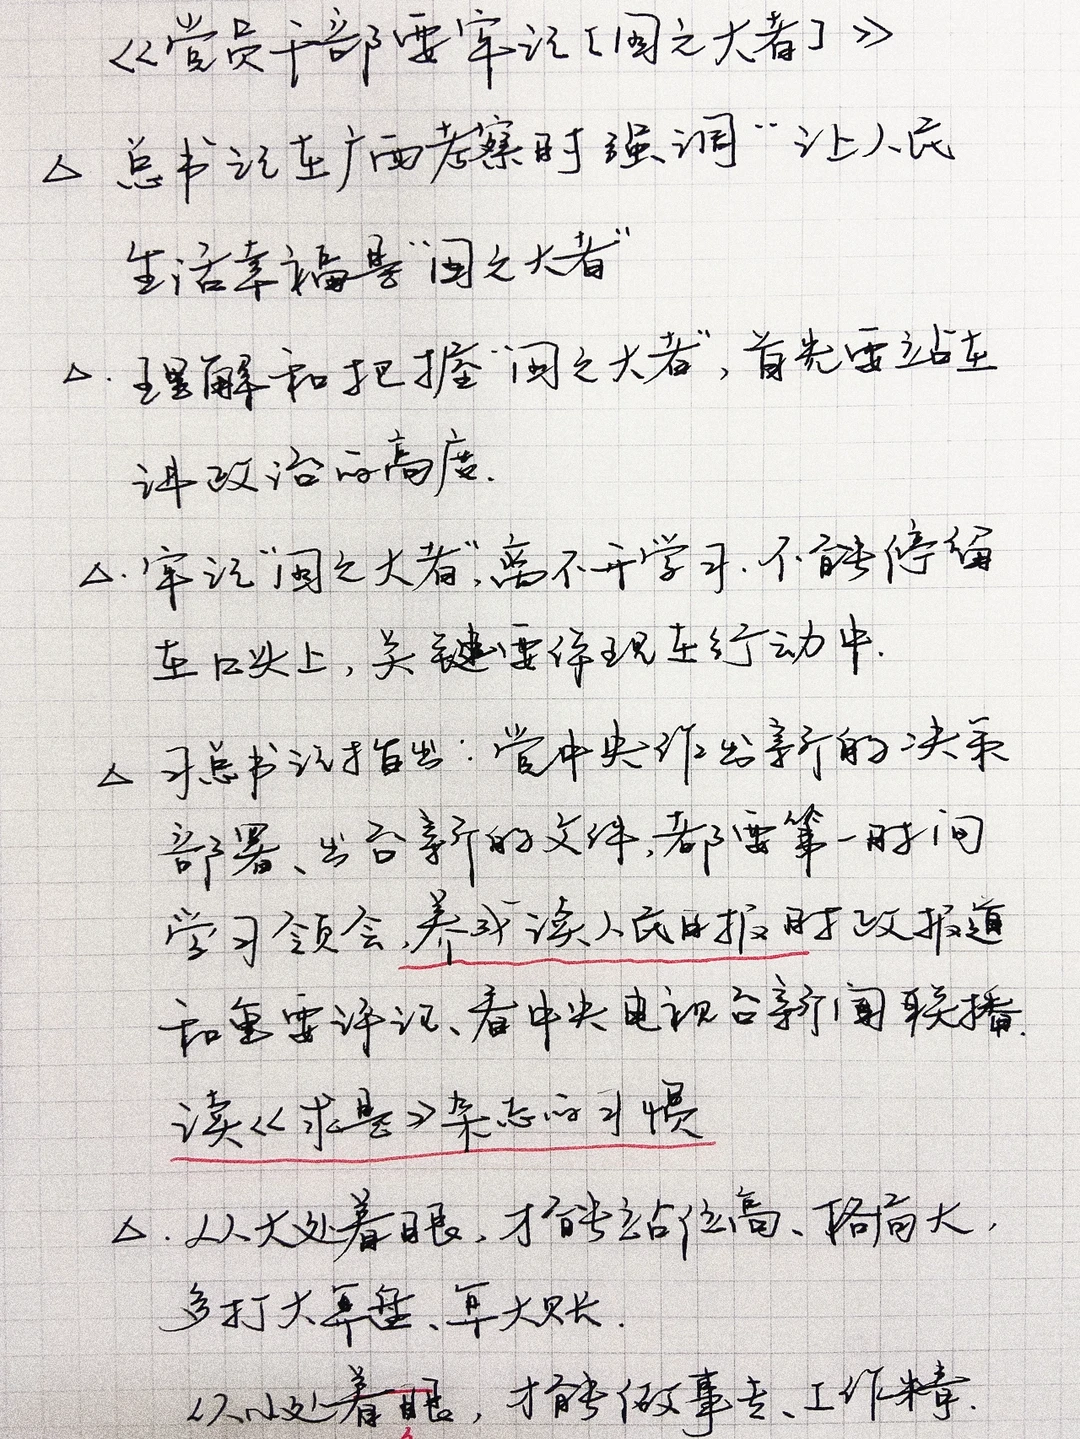 《党员干部要牢记[国之大者]》
△ 总书记在广西考察时强调“让人民
生活幸福是“国之大者”
△.理解和把握“国之大者”,首先要站在
讲政治的高度.
△.牢记“国之大者”,离不开学习.不能停留
在口头上,关键要体现在行动中.
△ 习总书记指出:党中央作出新的决策
部署、出台新的文件,都要第一时间
学习领会,养成读人民日报时政报道
和重要评论、看中央电视台新闻联播.
读《求是》杂志的习惯
△.从大处着眼,才能站位高、格局大,
多打大算盘、算大账.
从小处着眼,才能做事专、工作精.